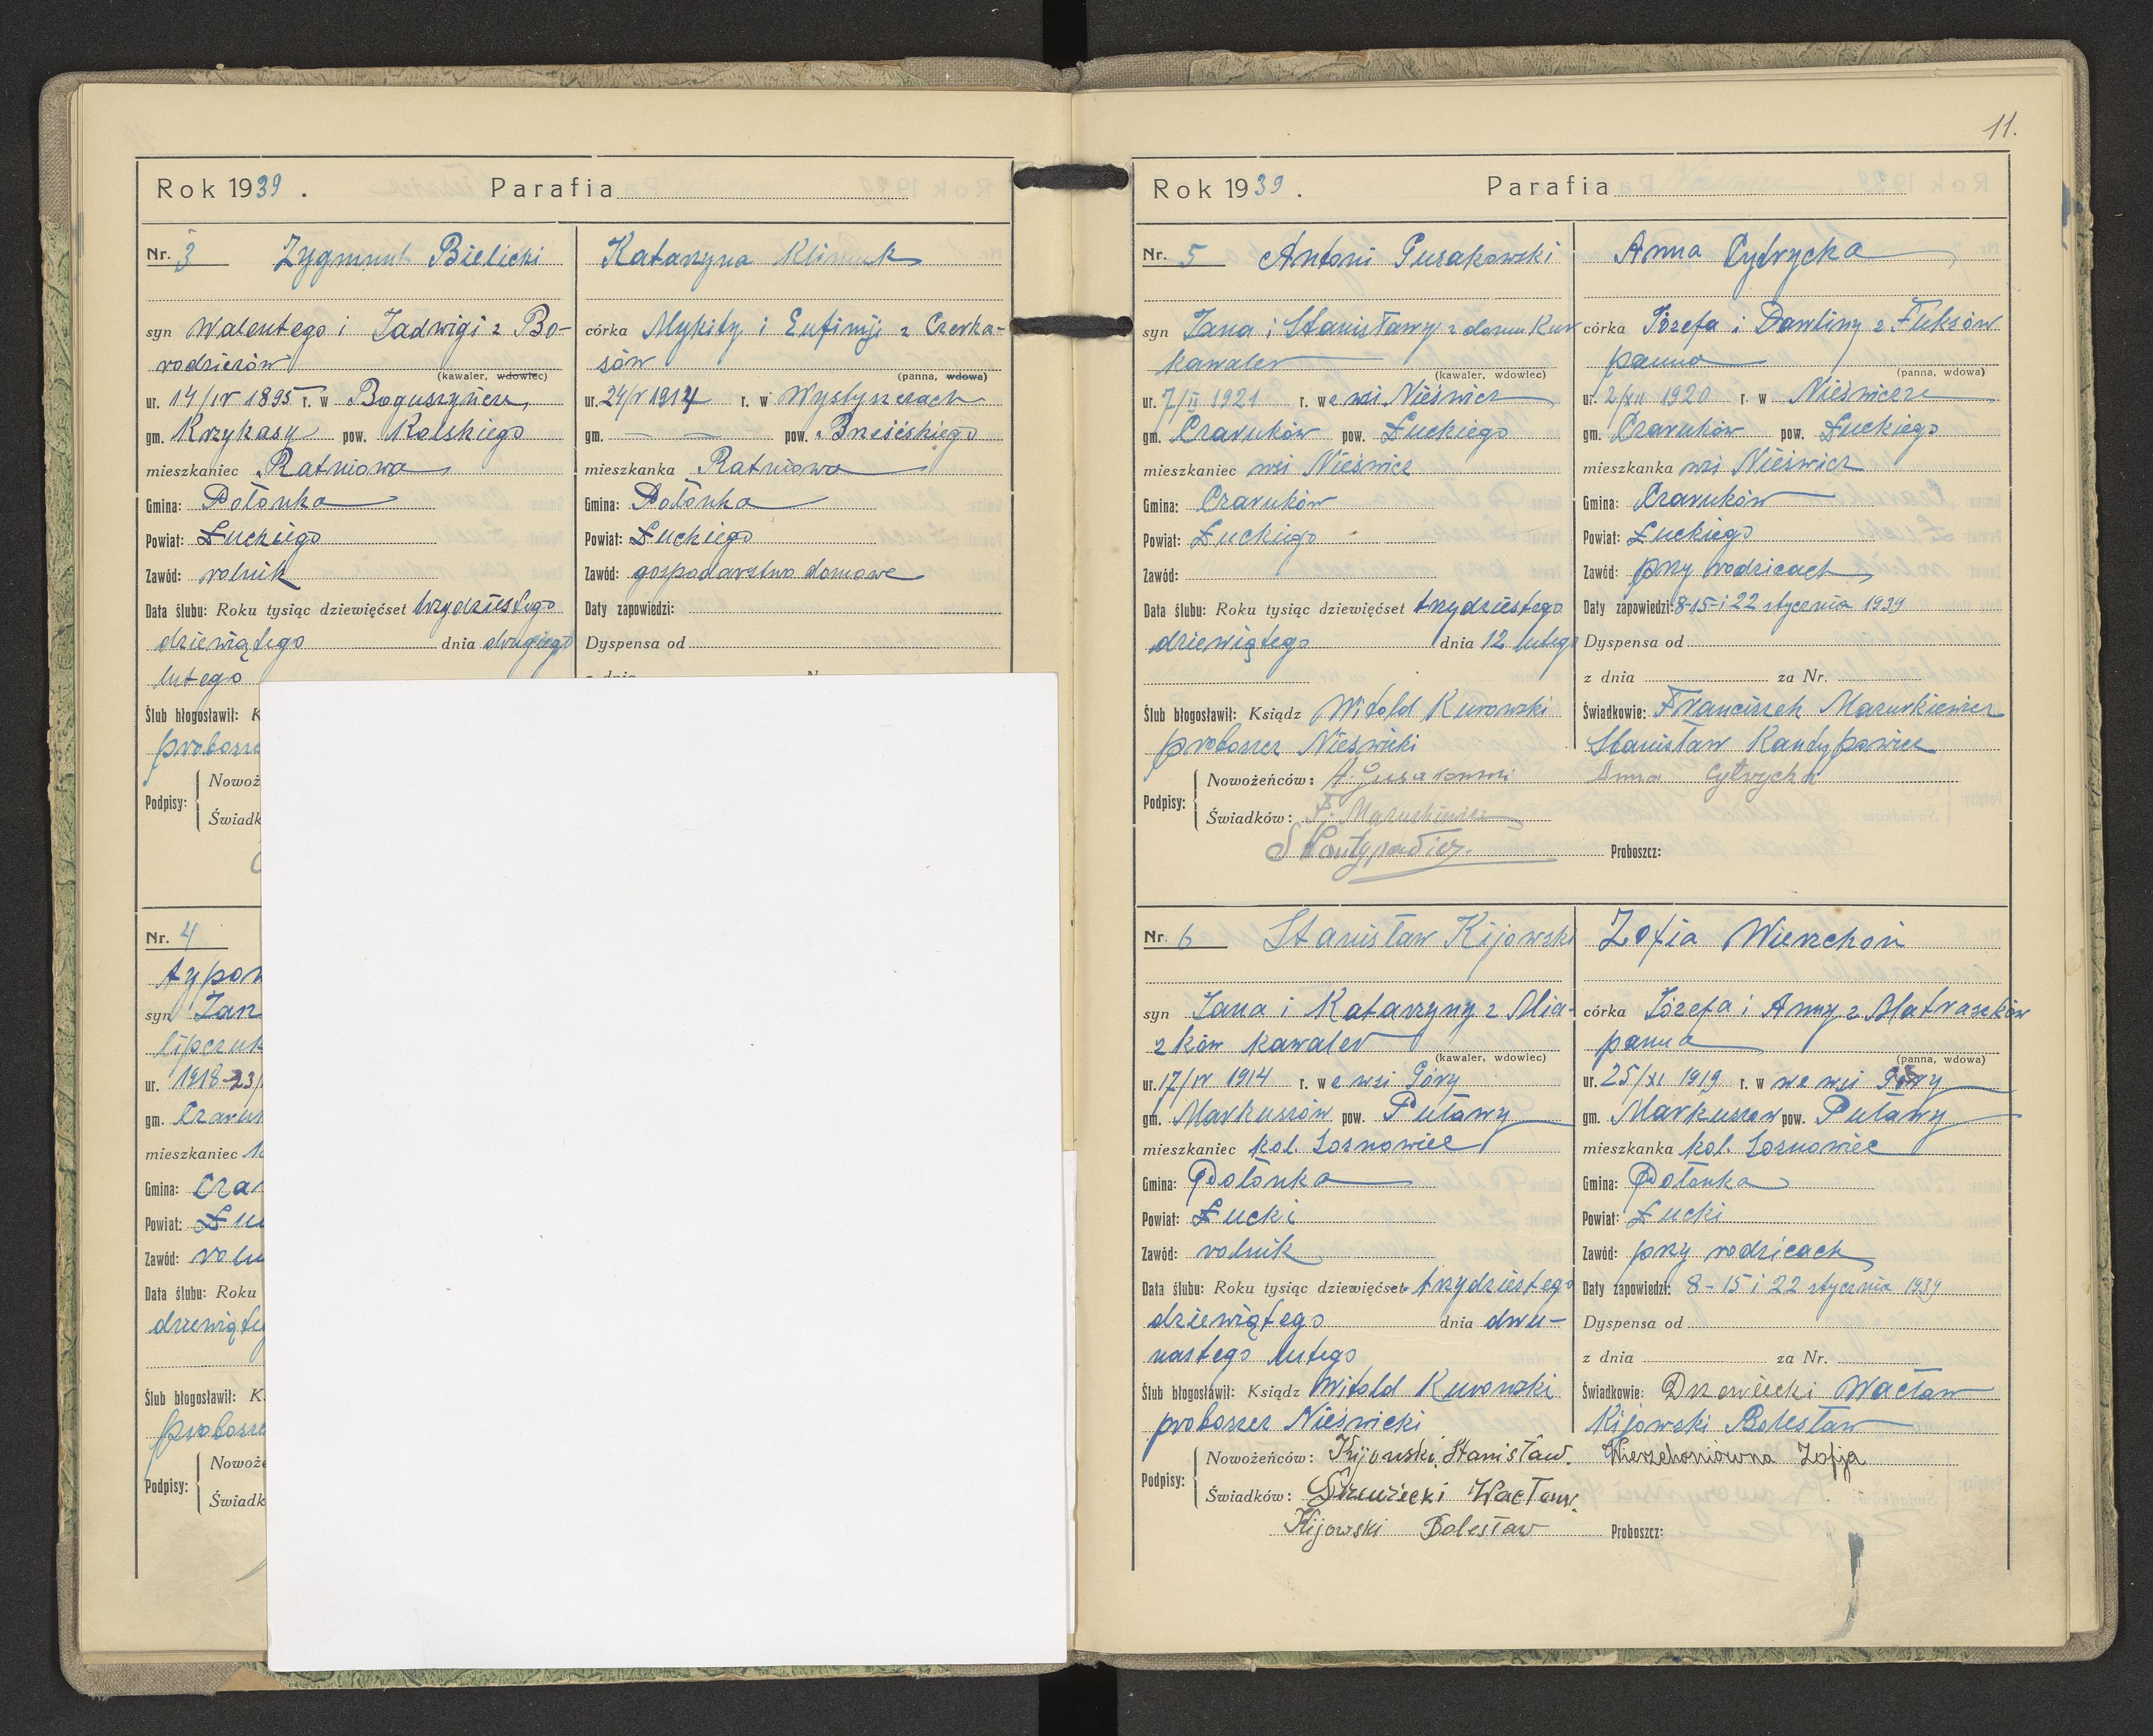 Rok 1939. Parafia
Nr. 3 Zygmunt Bielicki
syn Walentego i Jadwigi z Bo-
rodzieiów
(kawaler, wdowiec)
ur. 14/IV 1895 r. w Boguszyńcu
gm. Krzykasy pow. Kolskiego
mieszkaniec Ratniowa
Gmina: Połonka
Powiat: Łuckiego
Zawód: rolnik
Data ślubu: Roku tysiąc dziewięćset trzydziestego
dziewiątego dnia drugiego
lutego
Ślub błogosławił: K
probosz
Nowoż
Podpisy:
Świadk
Katarzyna Klimuk
córka Mykity i Eufimji z Czerka-
sów
(panna, wdowa)
ur. 24/V 1914 r. w Wystyszczach
gm. — — pow. Brześskiego
mieszkanka Ratniowa
Gmina: Połonka
Powiat: Łuckiego
Zawód: gospodarstwo domowe
Daty zapowiedzi:
Dyspensa od
Nr. 4
typow
syn Jan
lipczuk
ur. 1918-23/
gm. Czaruk
mieszkaniec
Gmina: Czar
Powiat: Łu
Zawód: roln
Data ślubu: Roku
dziewiąteg
Ślub błogosławił: K
probosz
Nowoże
Podpisy:
Świadk
11.
Rok 1939. Parafia
Nr. 5 Antoni Gusakowski
syn Jana i Stanisławy z domu Kur
kawaler
(kawaler, wdowiec)
ur. 7/II 1921 r. we wsi Nieświcz
gm. Czaruków pow. Łuckiego
mieszkaniec wsi Nieświcz
Gmina: Czaruków
Powiat: Łuckiego
Zawód:
Data ślubu: Roku tysiąc dziewięćset trzydziestego
dziewiątego dnia 12 lutego
Ślub błogosławił: Ksiądz Witold Kurowski
proboszcz Nieświcki
Anna Cytrycka
córka Józefa i Pawliny z Fluksów
panna
(panna, wdowa)
ur. 2/XII 1920 r. w Nieświcze
gm. Czaruków pow. Łuckiego
mieszkanka wsi Nieświcz
Gmina: Czaruków
Powiat: Łuckiego
Zawód: przy rodzicach
Daty zapowiedzi: 8-15-i 22 stycznia 1939
Dyspensa od
z dnia za Nr.
Świadkowie: Franciszek Mazurkiewicz
Stanisław Kantypowicz
Podpisy: Nowożeńców: A. Gusakowski Anna Cytrycka
Świadków: F. Mazurkiewicz
S Kantypowicz.
Proboszcz:
Nr. 6 Stanisław Kijowski
syn Jana i Katarzyny z Mia-
zków kawaler
(kawaler, wdowiec)
ur. 17/IV 1914 r. we wsi Góry
gm. Markuszów pow. Puławy
mieszkaniec kol. Sosnowiec
Gmina: Połonka
Powiat: Łucki
Zawód: rolnik
Data ślubu: Roku tysiąc dziewięćset trzydziestego
dziewiątego dnia dwu-
nastego lutego
Ślub błogosławił: Ksiądz Witold Kurowski
proboszcz Nieświcki
Zofia Wierzchoń
córka Józefa i Anny z Matraszków
panna
(panna, wdowa)
ur. 25/XI 1919 r. w we wsi Góry
gm. Markuszów pow. Puławy
mieszkanka kol. Sosnowiec
Gmina: Połonka
Powiat: Łucki
Zawód: przy rodzicach
Daty zapowiedzi: 8-15 i 22 stycznia 1939
Dyspensa od
z dnia za Nr.
Świadkowie: Drzewiecki Wacław
Kijowski Bolesław
Podpisy: Nowożeńców: Kijowski Stanisław. Wierzchoniówna Zofja
Świadków: Drzewiecki Wacław.
Kijowski Bolesław
Proboszcz: